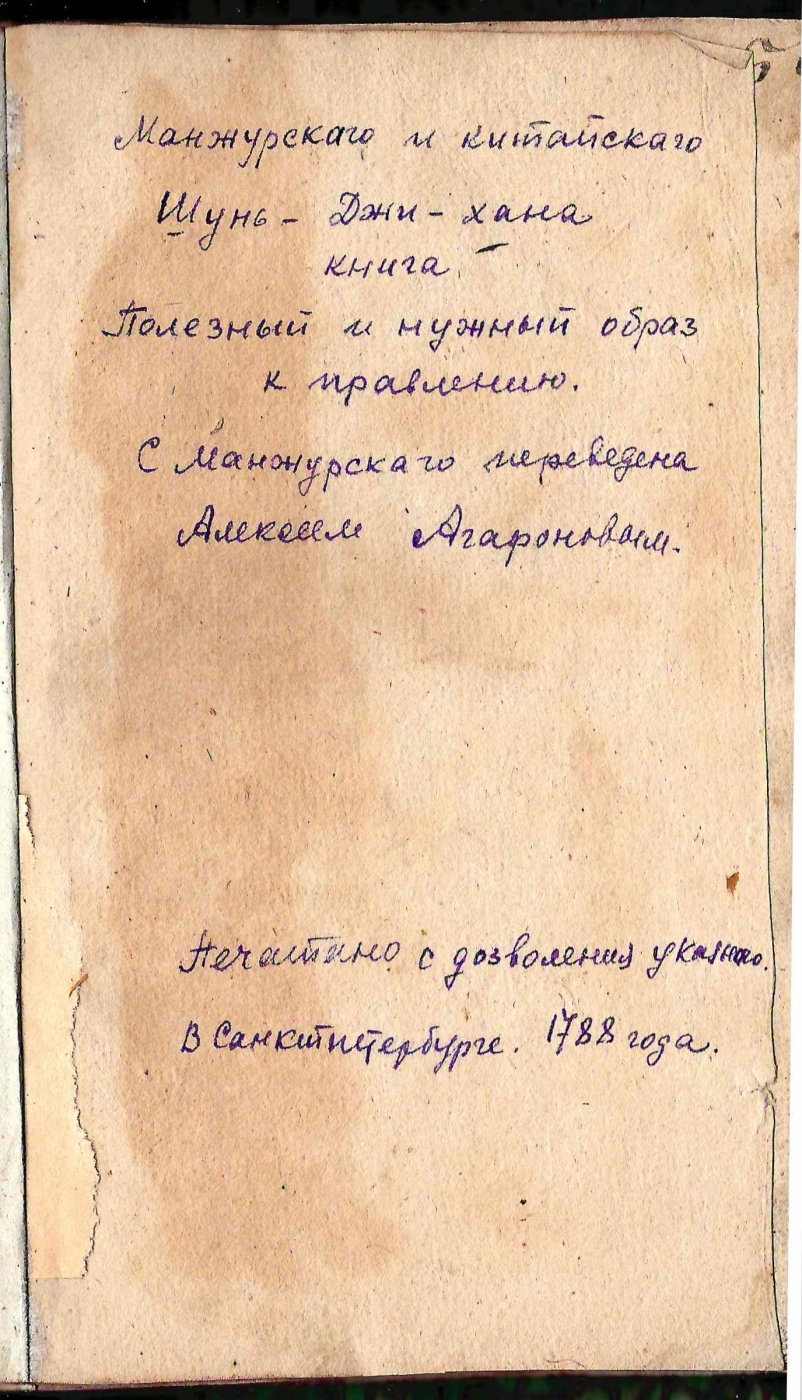 Манжурскаго и китайскаго
Шунь - Джи - хана
книга
Полезный и нужный образ
к правлению.
С Манжурскаго переведена
Алексеем Агароновым.
Печатано с дозволения указнаго.
В Санктпетербурге. 1788 года.